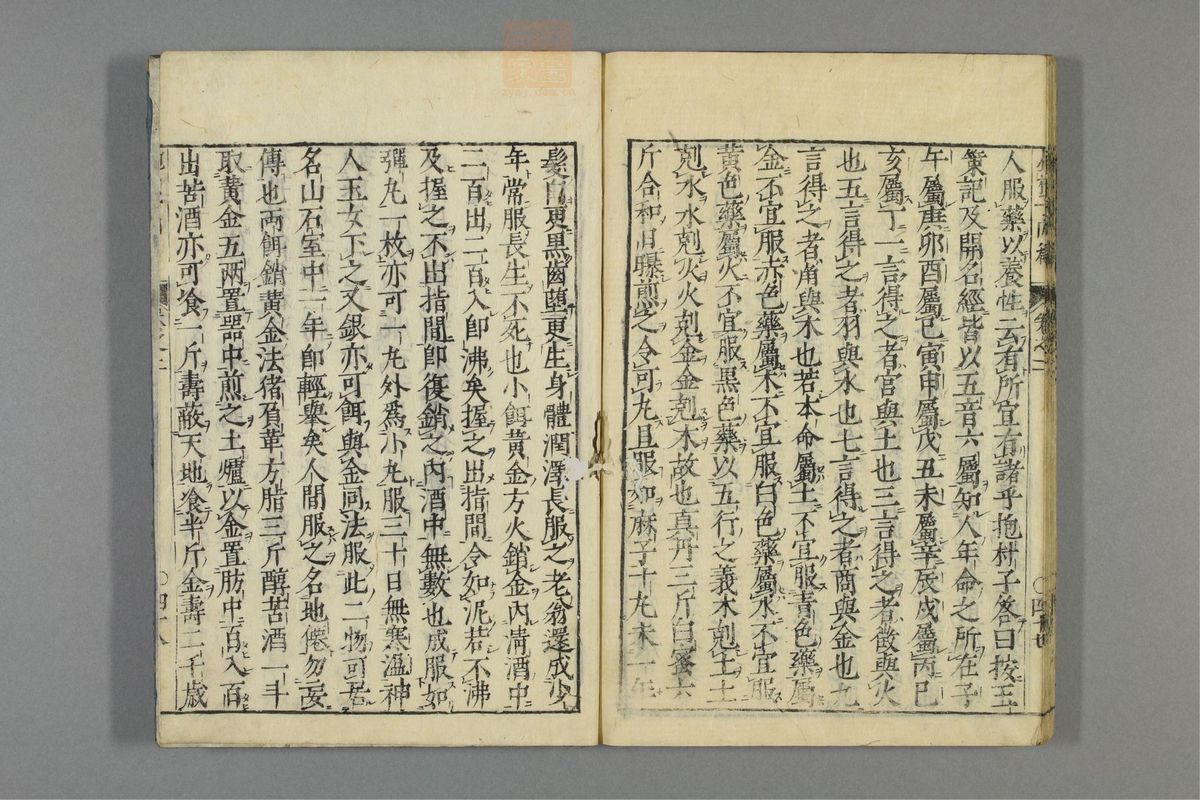 人服藥以養性云有所宜有諸乎抱朴子答曰按玉
策記及開名經皆以五音六屬知人年命之所在子
午屬庚卯酉屬己寅申屬戊丑未屬辛辰戌屬丙巳
亥屬丁一言得之者宮與土也三言得之者徵與火
也五言得之者羽與水也七言得之者商與金也九
言得之者角與木也若本命屬土不宜服青色藥屬
金不宜服赤色藥屬木不宜服白色藥屬水不宜服
黃色藥屬火不宜服黑色藥以五行之義木剋土土
剋水水剋火火剋金金剋木故也真丹三斤白蜜六
斤合和日曝煎之令可丸旦服如麻子十丸未一年
髮白更黑齒墮更生身體潤澤長服之老翁還成少
年常服長生不死也小餌黃金方火銷金內清酒中
二百出二百入即沸矣握之出指間令如泥若不沸
及握之不出指間即復銷之內酒中無數也成服如
彈丸一枚亦可一丸分為小丸服三十日無寒溫神
人玉女下之又銀亦可餌與金同法服此二物可居
名山石室中一年即輕舉矣人間服之名地僊勿妄
傳也兩餌銷黃金法猪負革方脂三斤醇苦酒一斗
取黃金五兩置器中煎之土爐以金置肪中百入百
出苦酒亦可飡一斤壽蔽天地飡半斤金壽二千歲
卷之二
四十八